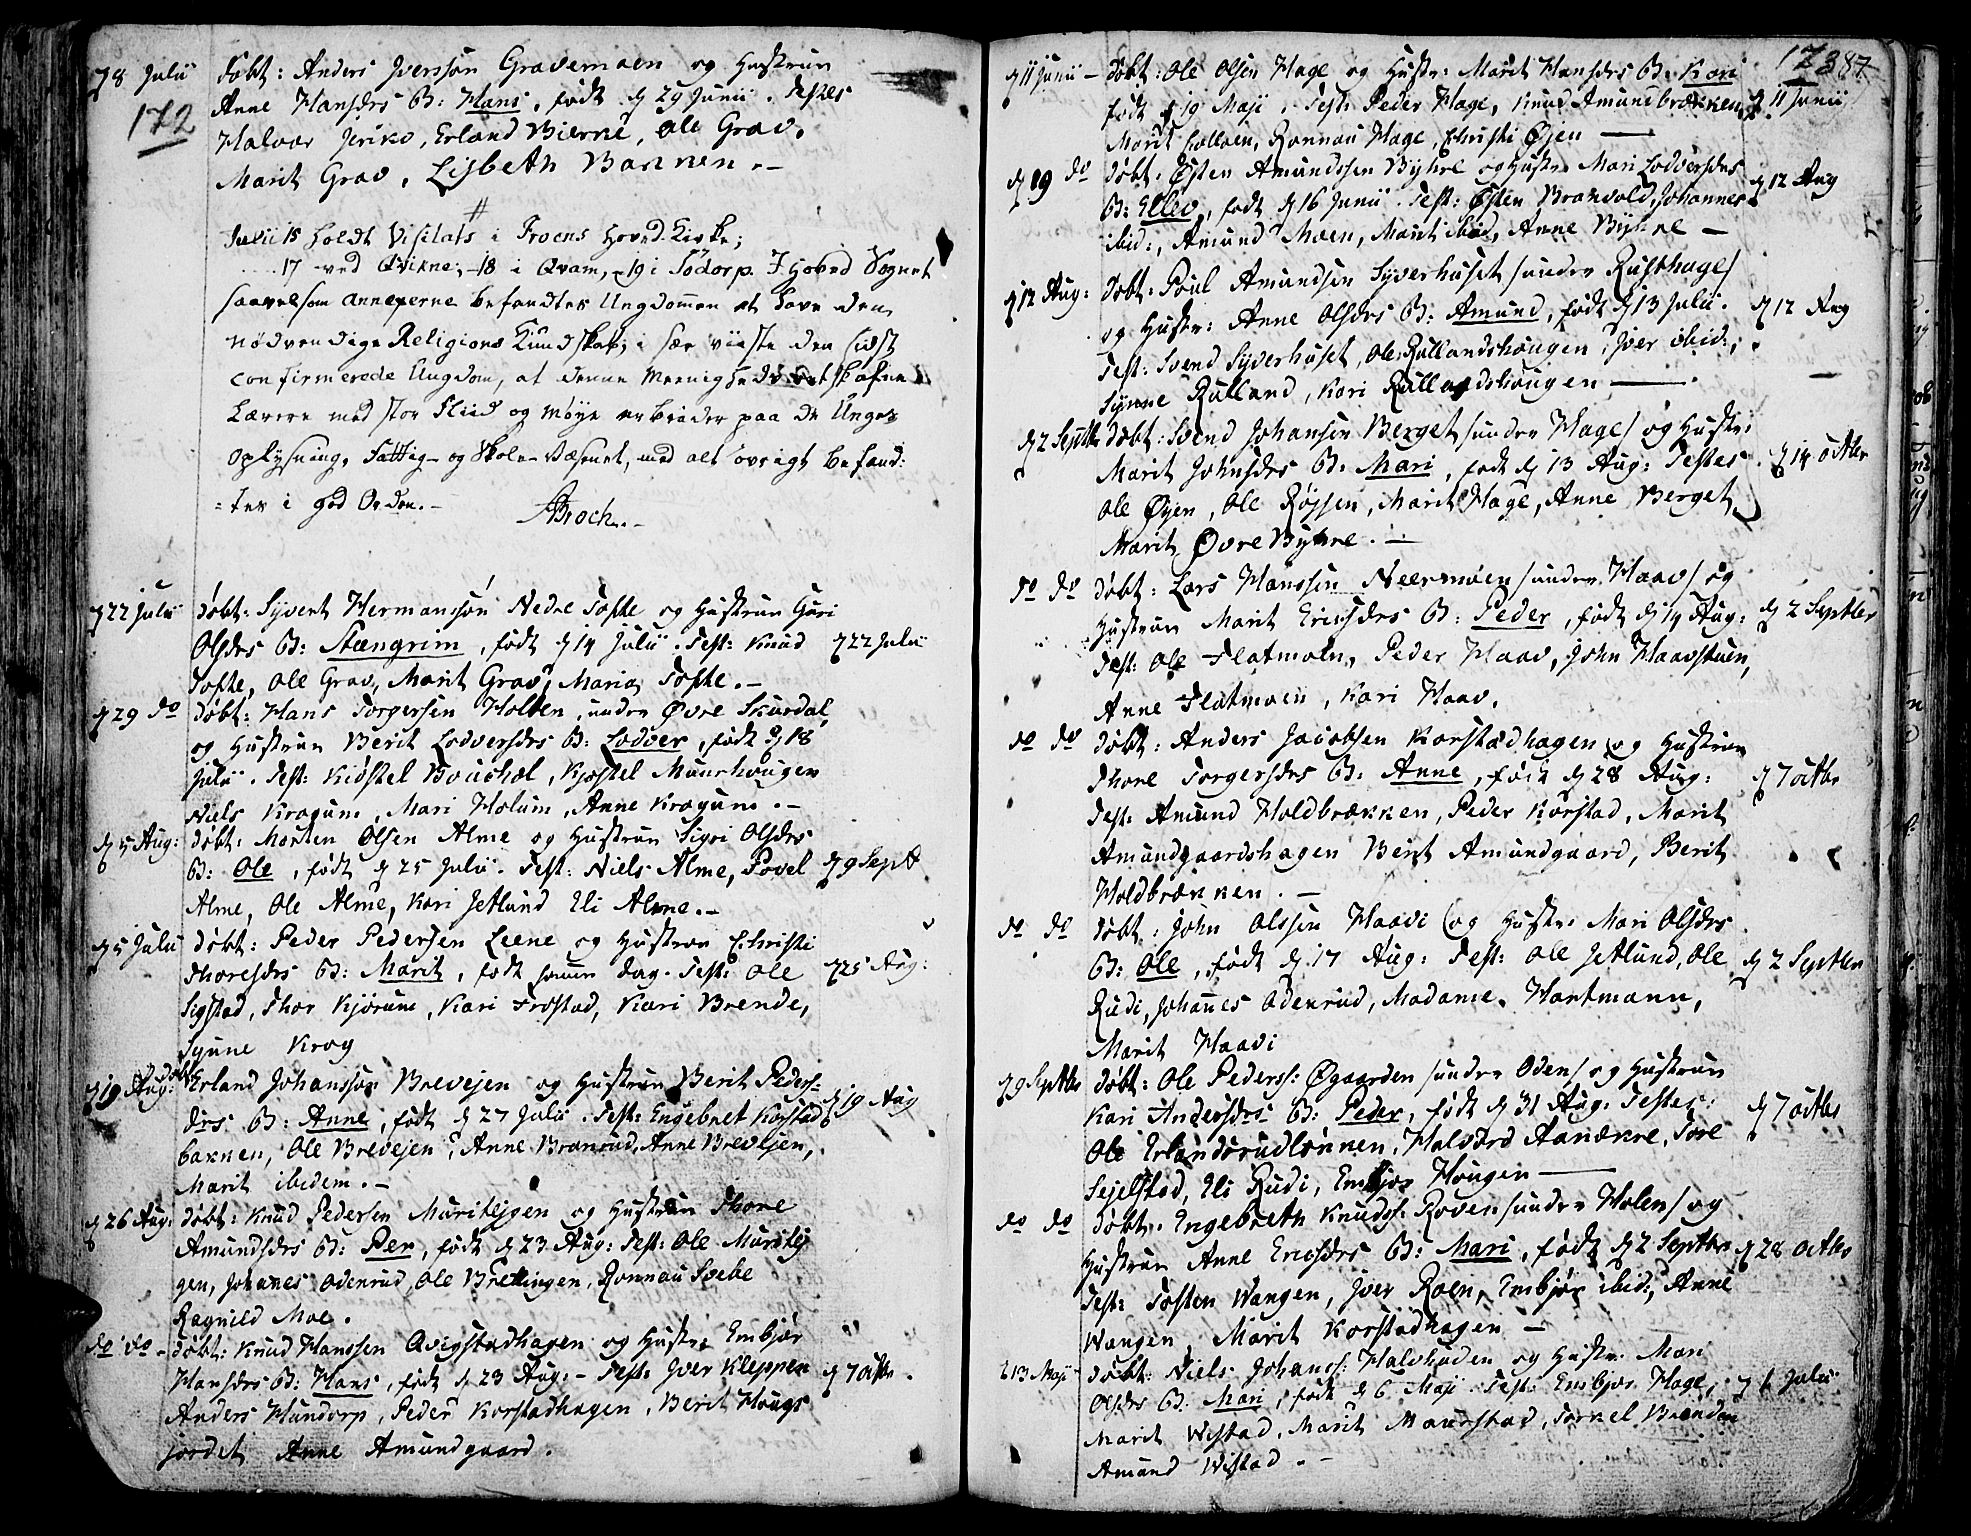 172
d 8 Julii døbt: Anders Iversøn Gravemoen og Hustrue
Anne Hansdrs B: Hans, født d 29 Junii. Testes
Halvor Jeriko, Erland Bierke, Ole Grav,
Marit Grav, Lisbeth Bakken.-
Julii 15 holdt Visitats i Froens Hoved-Kirke;
17 ved Qvikne, -18 i Qvam, -19 i Sødorp. I Hoved Sognet
saavelsom Annexerne befandtes Ungdommen at have den
nødvendige Religions Kundskab; i sær viiste den sidst
confirmerede Ungdom, at denne Meenigheds
Lærere med stor Fliid og Møye arbeider paa de Unges
Oplysning. Fattig- og Skole-Væsenet, med alt øvrigt befand-
-tes i god Orden.-
ABroch.-
d 22 Julii døbt: Syvert Hermanssøn Nedre Tofte og Hustrue Guri
Olsdrs B: Stængrim, født d 14 Julii. Test: Knud d 22 Julii
Tofte, Ole Grav, Marit Grav, Maria Tofte.-
d 29 do døbt: Hans Torgersen Holten, under Øvre Skurdal,
og Hustrue Berit Lodversdrs B: Lodver, født d 18
Julii. Test: Kiøstel Bouskol, Kjøstel Muurhougen
Niels Kragum, Mari Holum, Anne Kragum.-
d 5 Aug: døbt: Morten Olsen Alme og Hustrue Sigri Olsdrs
B: Ole, født d 25 Julii. Test: Niels Alme, Povel d 9 Sept
Alme, Ole Alme, Kari Jetlund Eli Alme.-
d 5 Julii døbt: Peder Pedersen Leene og Hustrue Christi
Thoresdrs B: Marit, født samme dag. Test: Ole d 25 Aug:
Sigstad, Thor Kjørum, Kari Frostad, Kari Brende,
Synne Krog
d 19 Aug: døbt Erland Johanssøn Brevejen og Hustrue Berit Peders-
drs B: Anne, født d 27 Julii. Test: Engebret Korstad d 19 Aug
bakken, Ole Brevejen, Anne Branrud, Anne Brevejen,
Marit ibidem.-
d 26 Aug: døbt: Knud Pedersen Muritejgen og Hustrue Thore
Amundsdrs B: Per, født d 23 Aug: Test: Ole Muritej
gen, Johanes Odenrud, Ole Brettingen, Ronnau Svebe
Ragnild Moe.
do do - døbt: Knud Hanssen Qvigstadhagen og Hustr: Embjør
Hansdrs B: Hans, født d 23 Aug: - Test: Iver Kleppen d 7 octbr.
Anders Hundorp, Peder Korstadhagen, Berit Hougs
jordet Anne Amundgaard.
173 87
d 11 Junii - døbt: Ole Olsen Hage og Hustr: Marit Hansdrs B: Kari
født d 19 Maji. Test: Peder Hage, Knud Amundbrekken d 11 Junii
Marit, Ronnau Hage, Christi Øjen
d 19 do døbt: Østen Amundssen Byhre og Hustr: Mari Lodversdrs
B: Ellev, født d 16 Junii. Test: Østen Branvold, Johannes d 12 Aug
ibid:, Amund Moen, Marit ibid, Anne Byhre -
d 12 Aug: døbt: Poul Amundsen Syverhuset /under Rusthage/
og Hustr: Anne Olsdrs B: Amund, født d 13 Julii. d 12 Aug
Test: Svend Syverhuset, Ole Rullandshougen, Iver ibid:,
Synne Rulland, Kari Rullandshougen
d 2 Septbr døbt: Svend Johansen Berget /under Hage/ og Hustr:
Marit Johnsdrs B: Mari, født d 13 Aug: Testes d 14 octbr
Ole Øjen, Ole Røjsen, Marit Hage, Anne Berget
Marit Øvre Byhre.-
do do døbt: Lars Hanssen Neermoen /under Haav/ og
Hustrue Marit Ericsdrs B: Peder, født d 14 Aug: d 2 Septbr
Test: Ole Flatmoen, Peder Haav, John Haavstuen,
Anne Flatmoen, Kari Haav.
do do døbt: Anders Jacobsen Korstadhagen og Hustrue
Thore Torgersdrs B: Anne, født d 28 Aug: d 7 octbr
Test: Amund Holdbrækken, Peder Korstad, Marit
Amundgaardshagen Berit Amundgaard, Berit
Holdbrækken.-
do do døbt: John Olssen Haavi og Hustr: Mari Olsdrs
B: Ole, født d 17 Aug: Test: Ole Jetlund, Ole d 2 Septbr
Rudi, Johanes Odenrud, Madame Hartmann,
Marit Haavi
d 9 Septbr døbt: Ole Peders: Øgaarden /under Oden/ og Hustrue
Kari Andersdrs B: Peder, født d 31 Aug: Testes: d 7 octbr
Ole Erlandsrudlønnen, Halvord Aanekre, Tore
Sejelstad, Eli Rudi, Embjør Hougen
do do døbt: Engebreth Knuds: Roven /under Holen/ og
Hustrue Anne Ericsdrs B: Mari, født d 2 Septbr d 28 octbr
Test: Tosten Wangen, Iver Roen, Embjør ibid:, Anne
Wangen, Marit Korstadhagen -
d 13 Maji døbt: Niels Johans: Halvhuden og Hustr: Mari
Olsdrs B: Mari, født d 6 Maji Test: Embjør Hage, d 1 Julii
Marit Wistad, Marit Maurstad, Torkel Brenden
Amund Wistad.-